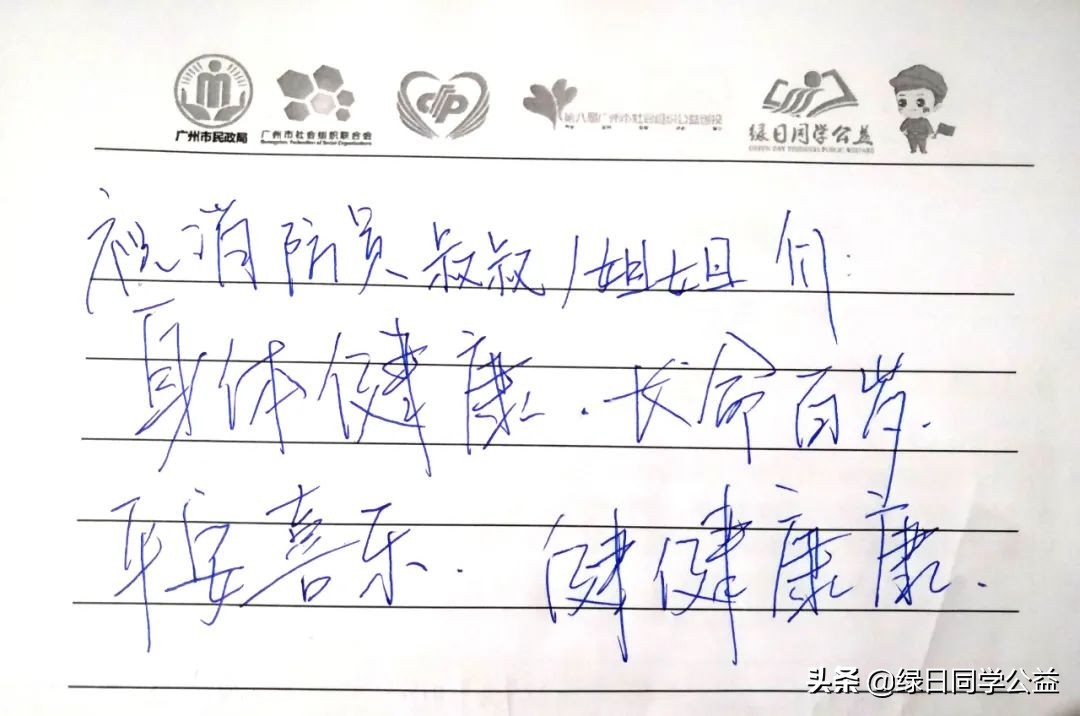 广州市民政局 广州市社会组织联合会 第八届广州市社会组织公益创投 绿日同学公益
Guangzhou Federation of Social Organizations GREEN DAY
祝消防员叔叔/姐姐们:
身体健康.长命百岁.
平安喜乐. 健健康康.
头条 @绿日同学公益